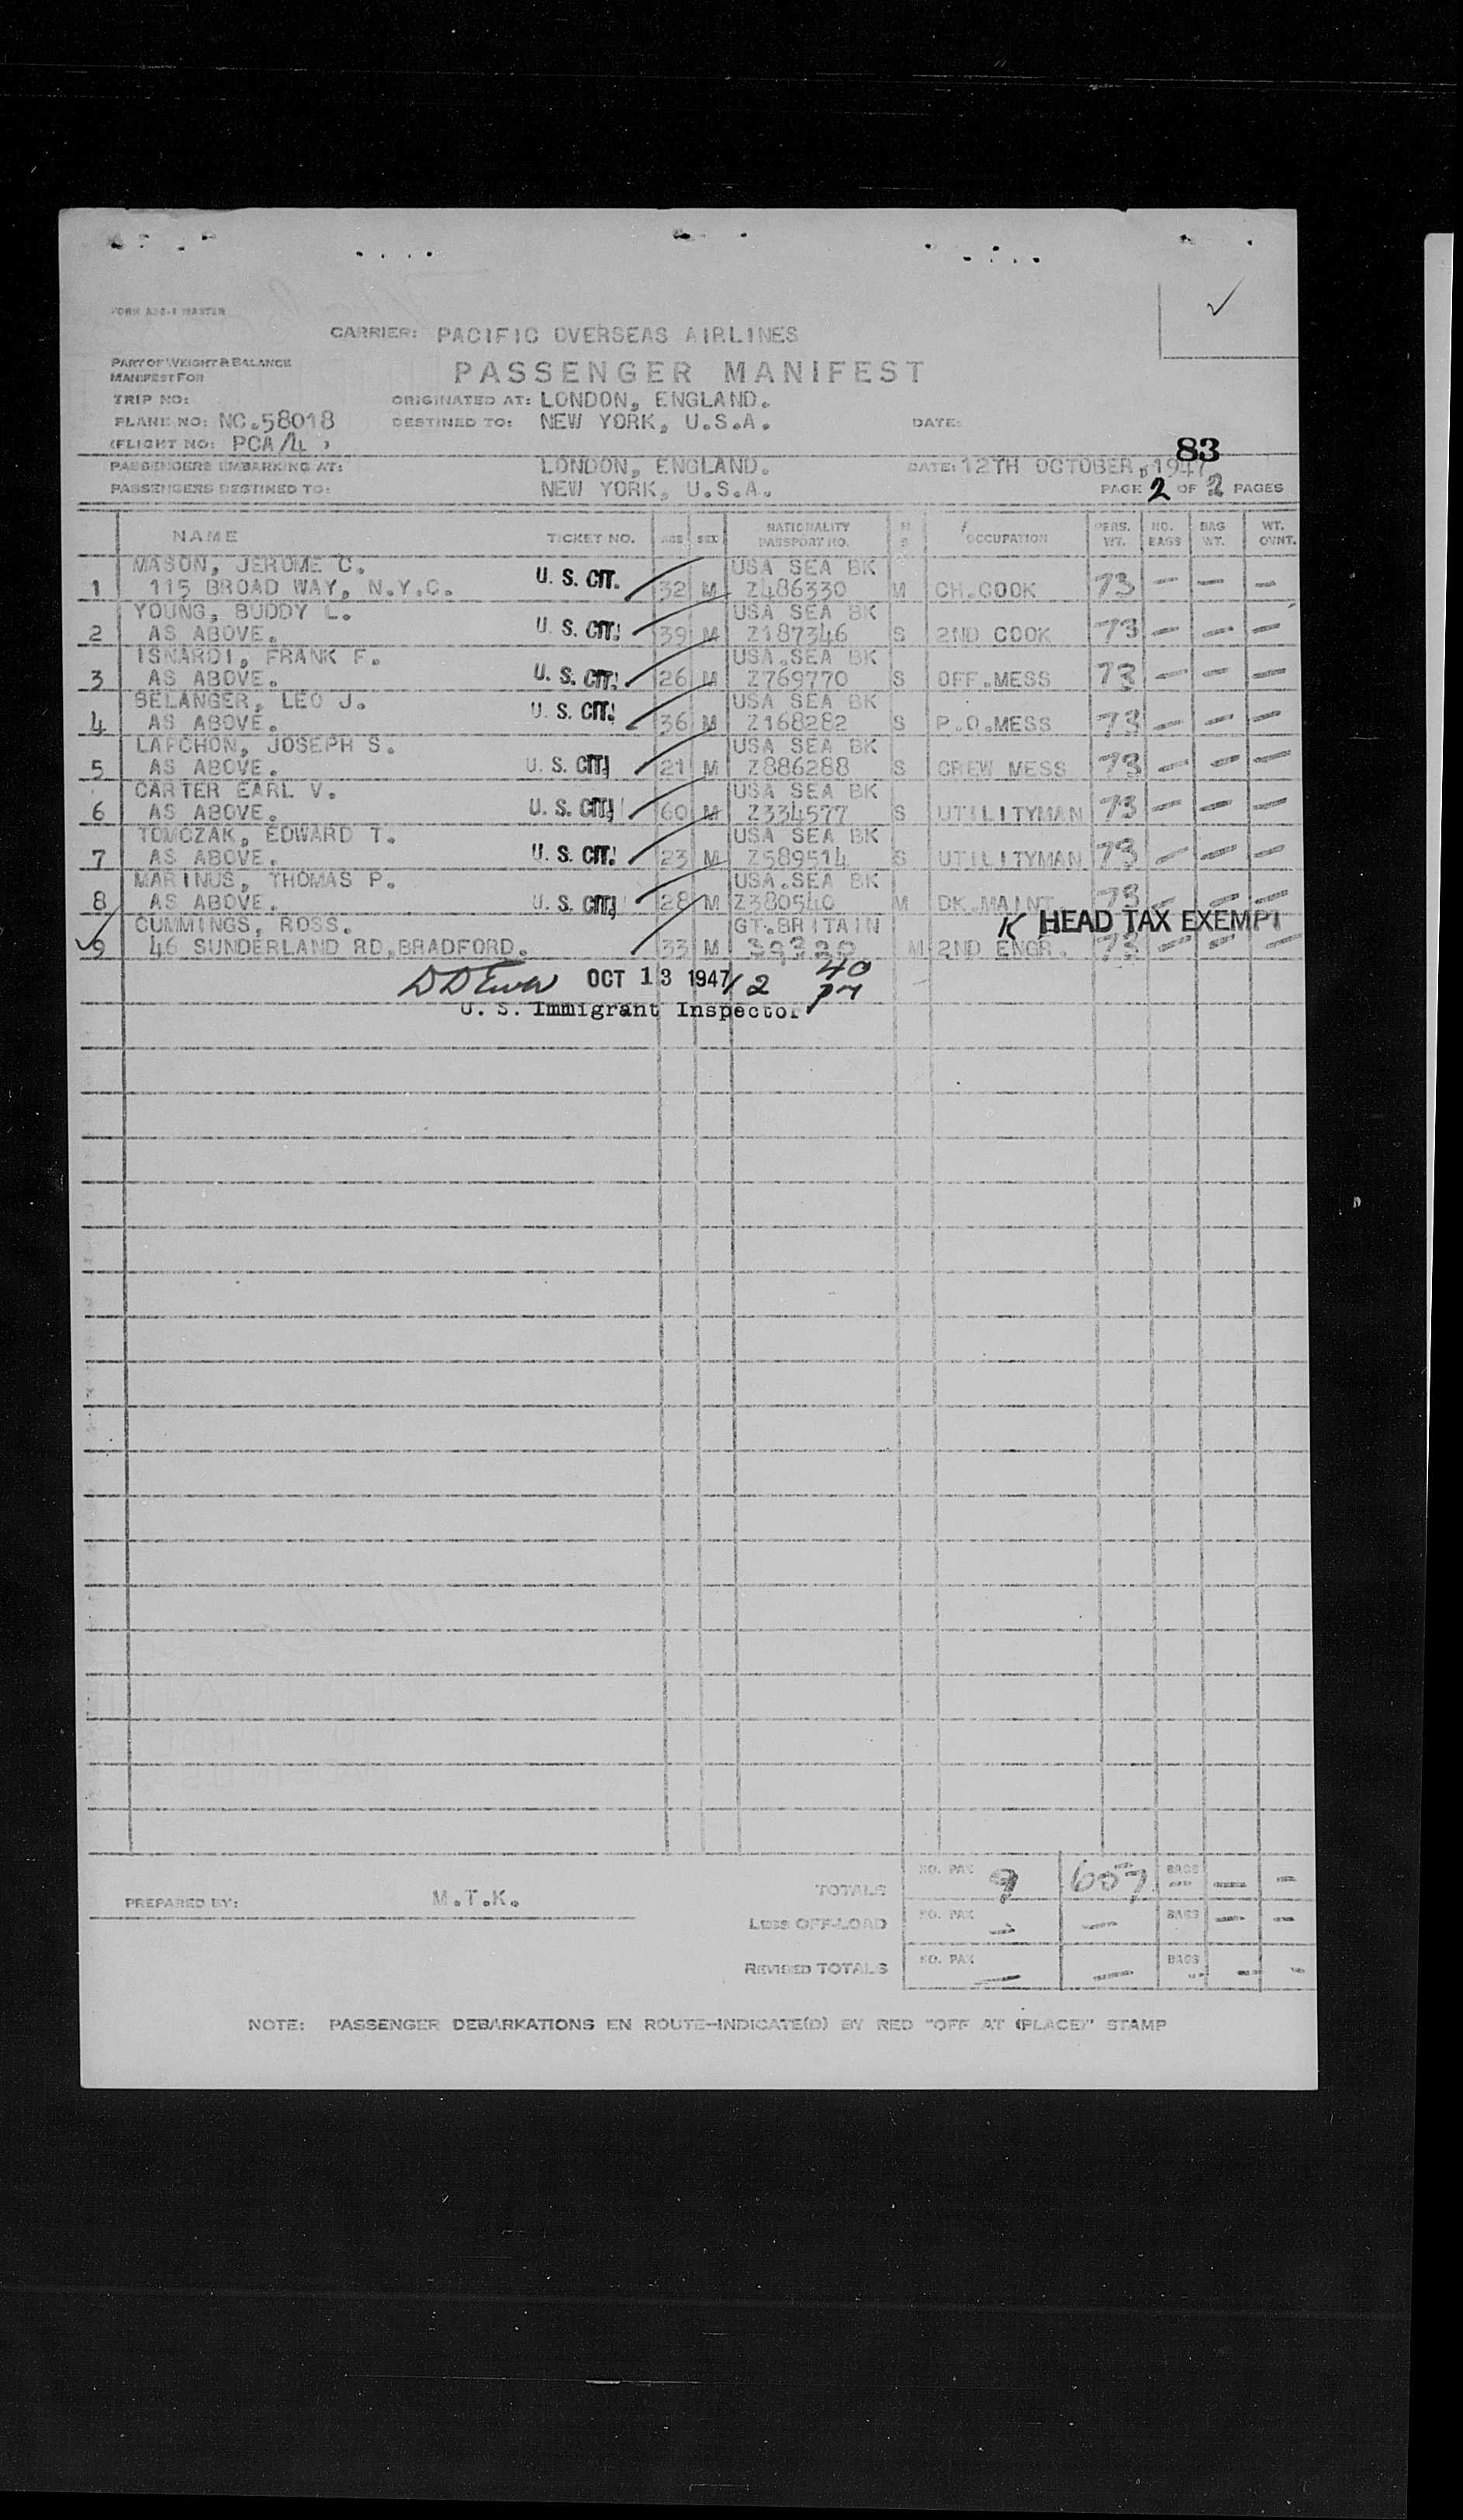 FORM ABS-1 MASTER
CARRIER: PACIFIC OVERSEAS AIRLINES
PART OF WEIGHT & BALANCE
MANIFEST FOR
PASSENGER MANIFEST
TRIP NO: ORIGINATED AT: LONDON, ENGLAND.
PLANE NO: NC.58018 DESTINED TO: NEW YORK, U.S.A. DATE:
(FLIGHT NO: PCA/4 )
83
PASSENGERS EMBARKING AT: LONDON, ENGLAND. DATE: 12TH OCTOBER, 1947
PASSENGERS DESTINED TO: NEW YORK, U.S.A. PAGE 2 OF 2 PAGES
NAME TICKET NO. AGE SEX NATIONALITY PASSPORT NO. M S OCCUPATION PERS. WT. NO. BAGS BAG WT. WT. OVNT.
MASON, JEROME C. USA SEA BK
1 115 BROAD WAY, N.Y.C. U. S. CIT. 32 M Z486330 M CH.COOK 73 — — —
YOUNG, BUDDY L. USA SEA BK
2 AS ABOVE. U. S. CIT. 39 M Z187346 S 2ND COOK 73 — — —
ISNARDI, FRANK F. USA.SEA BK
3 AS ABOVE. U. S. CIT. 26 M Z769770 S OFF.MESS 73 — — —
BELANGER, LEO J. USA SEA BK
4 AS ABOVE. U. S. CIT. 36 M Z168282 S P.O.MESS 73 — — —
LAPCHON, JOSEPH S. USA SEA BK
5 AS ABOVE. U. S. CIT. 21 M Z886288 S CREW MESS 73 — — —
CARTER EARL V. USA SEA BK
6 AS ABOVE. U. S. CIT. 60 M Z334577 S UTILITYMAN 73 — — —
TOMCZAK, EDWARD T. USA SEA BK
7 AS ABOVE. U. S. CIT. 23 M Z589514 S UTILITYMAN 73 — — —
MARINOS, THOMAS P. USA.SEA BK
8 AS ABOVE. U. S. CIT. 28 M Z380540 M DK.MAINT. 73 — — —
CUMMINGS, ROSS. GT.BRITAIN K HEAD TAX EXEMPT
9 46 SUNDERLAND RD,BRADFORD. 33 M 39320 M 2ND ENGR. 73 — — —
OCT 13 1947 12 40 PM
U. S. Immigrant Inspector
TOTALS NO. PAX 9 657 BAGS — — —
PREPARED BY: M.T.K.
LESS OFF-LOAD NO. PAX — — BAGS — —
REVISED TOTALS NO. PAX — — BAGS — — —
NOTE: PASSENGER DEBARKATIONS EN ROUTE—INDICATE(D) BY RED "OFF AT (PLACE)" STAMP